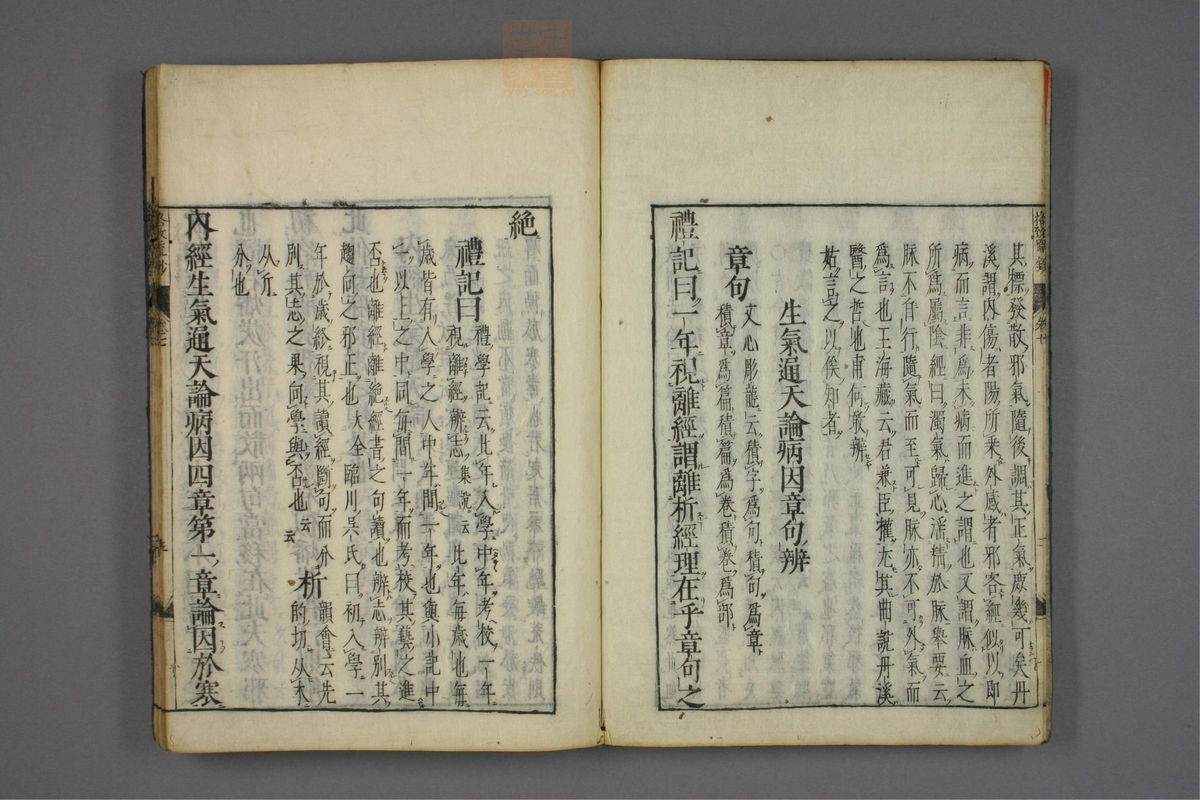 其標發散邪氣隨後調其正氣庶幾可矣丹
溪謂内傷者陽所乘外感者邪客經似以即
病而言非爲未病而進之謂也又謂脉血之
所爲屬陰經曰濁氣歸心淫精於脉舉要云
脉不自行隨氣而至可見脉亦不可外氣而
爲言也王海藏云君兼臣權尤其曲說丹溪
醫之哲也甫何敢辨
姑言之以俟知者
生氣通天論病因章句辨
章句
文心彫龍云積字爲句積句爲章
積章爲篇積篇爲卷積卷爲部
禮記曰一年視離經謂離析經理在乎章句之
絶
禮記曰
禮學記云比年入學中年考校一年
視離經辨志 集說云 比年每歲也每
歲皆有入學之人中年間一年也與小記中
一以上之中同每間一年而考校其藝之進
否也離經離絶經書之句讀也辨志辨別其
趨向之邪正也 大全臨川吳氏曰初入學一
年於歲終視其讀經斷句而分
別其志之果向學與否也 云云
析
韻會云先
的切从木
从斤
分也
内經生氣通天論病因四章第一章論因於寒